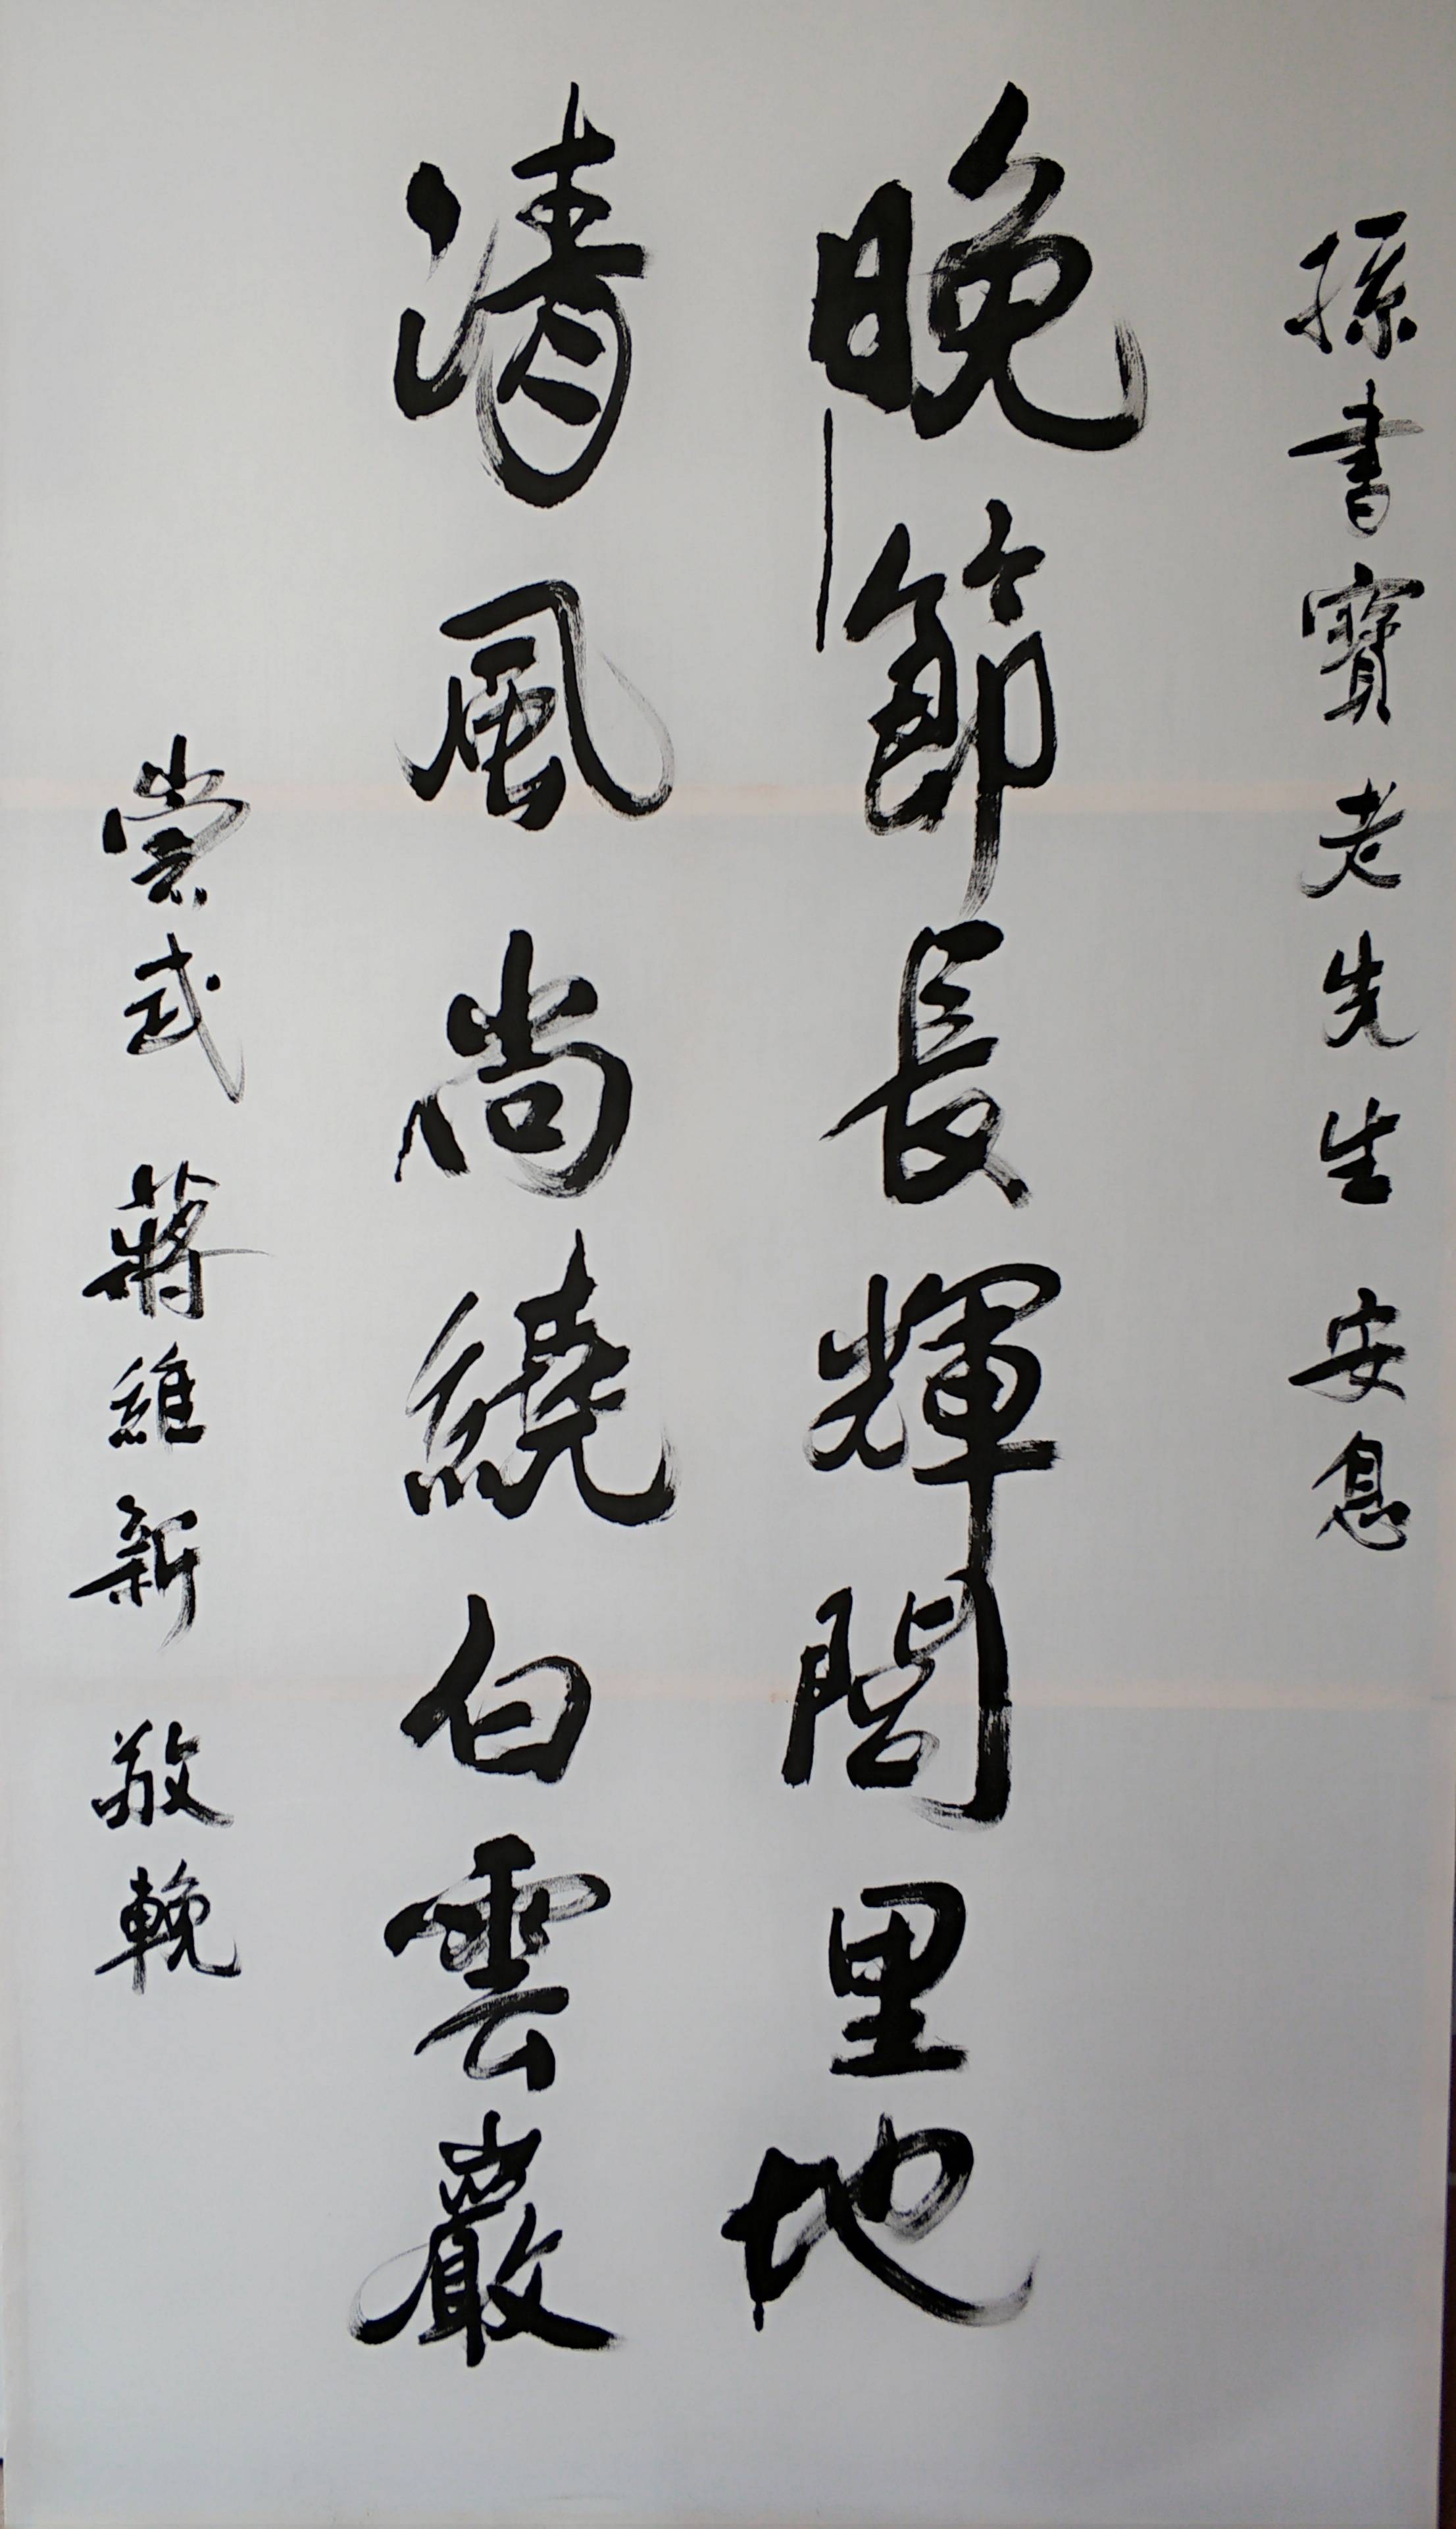 孫書寶老先生 安息
晚節長輝閭里地
清風尚繞白雲巖
崇武 蔣維新 敬輓